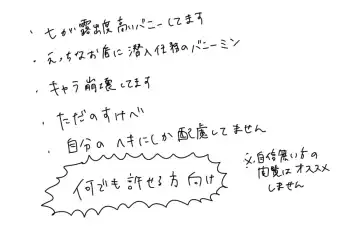 ・七が露出度高いバニーしてます
・えっちなお店に潜入任務のバニーミン
・キャラ崩壊してます
・ただのすけべ
・自分のヘキにしか配慮してません
何でも許せる方向け
※自信無い方の
閲覧はオススメ
しません